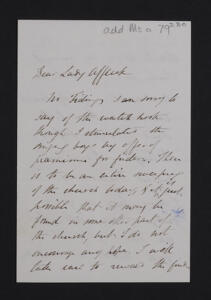 add Ms a 79
Dear Lady Affleck
No tidings I am sorry to
say of the watch hook
though I stimulated the
singing boys by offer of
for finders. There
is to be an entire sweeping
of the church today & it is just
possible that it may be
found in some other part of
the church, but I do not
encourage any hope. I will
take care to reward the